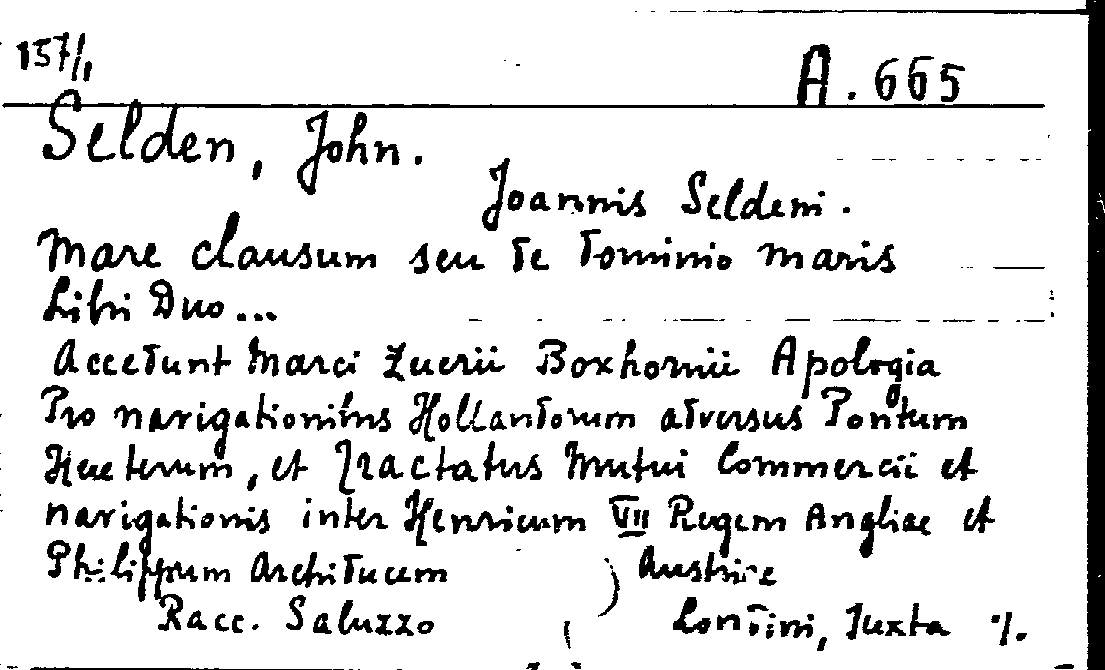 157/1
A. 665
Selden, John.
Joannis Seldeni.
Mare clausum seu de dominio maris
Libri Duo...
Accedunt Marci Zuerii Boxhornii Apologia
Pro navigationibus Hollandorum adversus Pontum
Heuterum, et Tractatus Mutui Commercii et
navigationis inter Henricum VII Regem Angliae et
Philippum Archiducem Austriae
Racc. Saluzzo
Londini, Iuxta ./.